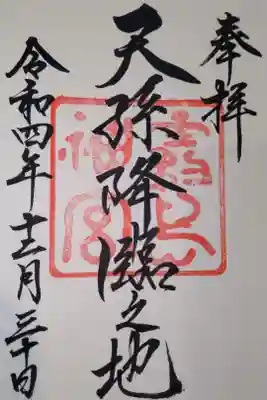 奉拝
天孫降臨之地
霧島神宮
令和四年十二月三十日